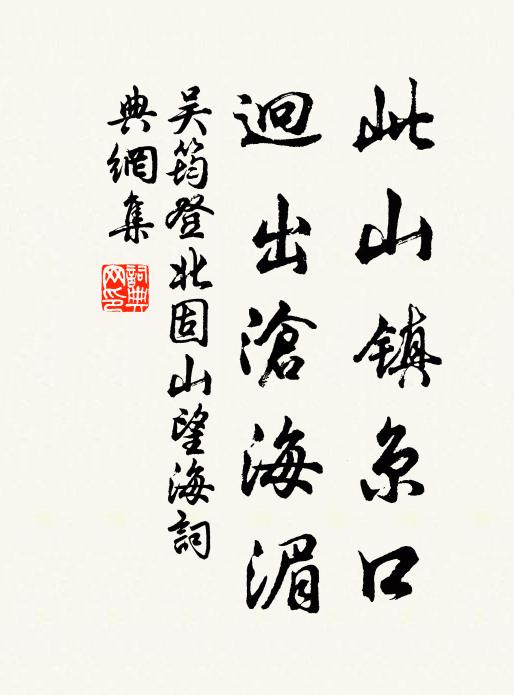 此山镇京口
迥出滄海湄
吴筠登北固山望海詞
典網集
詞典網印